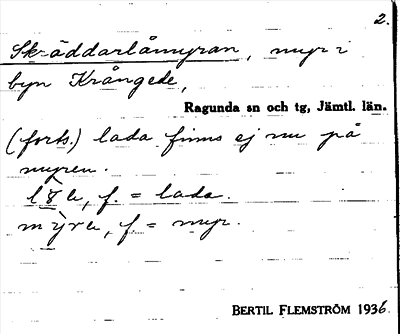 2.
Skräddarlåmyran, myr i
byn Krångede,
Ragunda sn och tg, Jämtl. län.
(forts.) lada finns ej nu på
myren.
f. = lada.
f = myr.
BERTIL FLEMSTRÖM 1936.